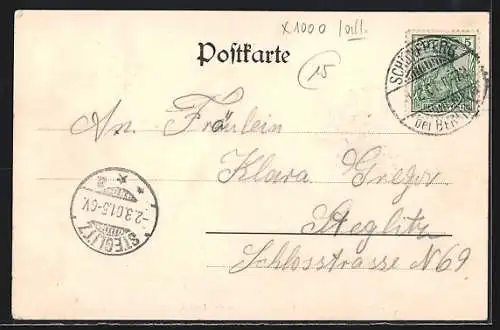 x1000
Postkarte
15
5
SCHÖNEBERG
bei BERLIN
An. Fräulein
Klara Gregor
Steglitz
STEGLITZ
-2.3.01.5-6V.
Schlosstrasse N 69